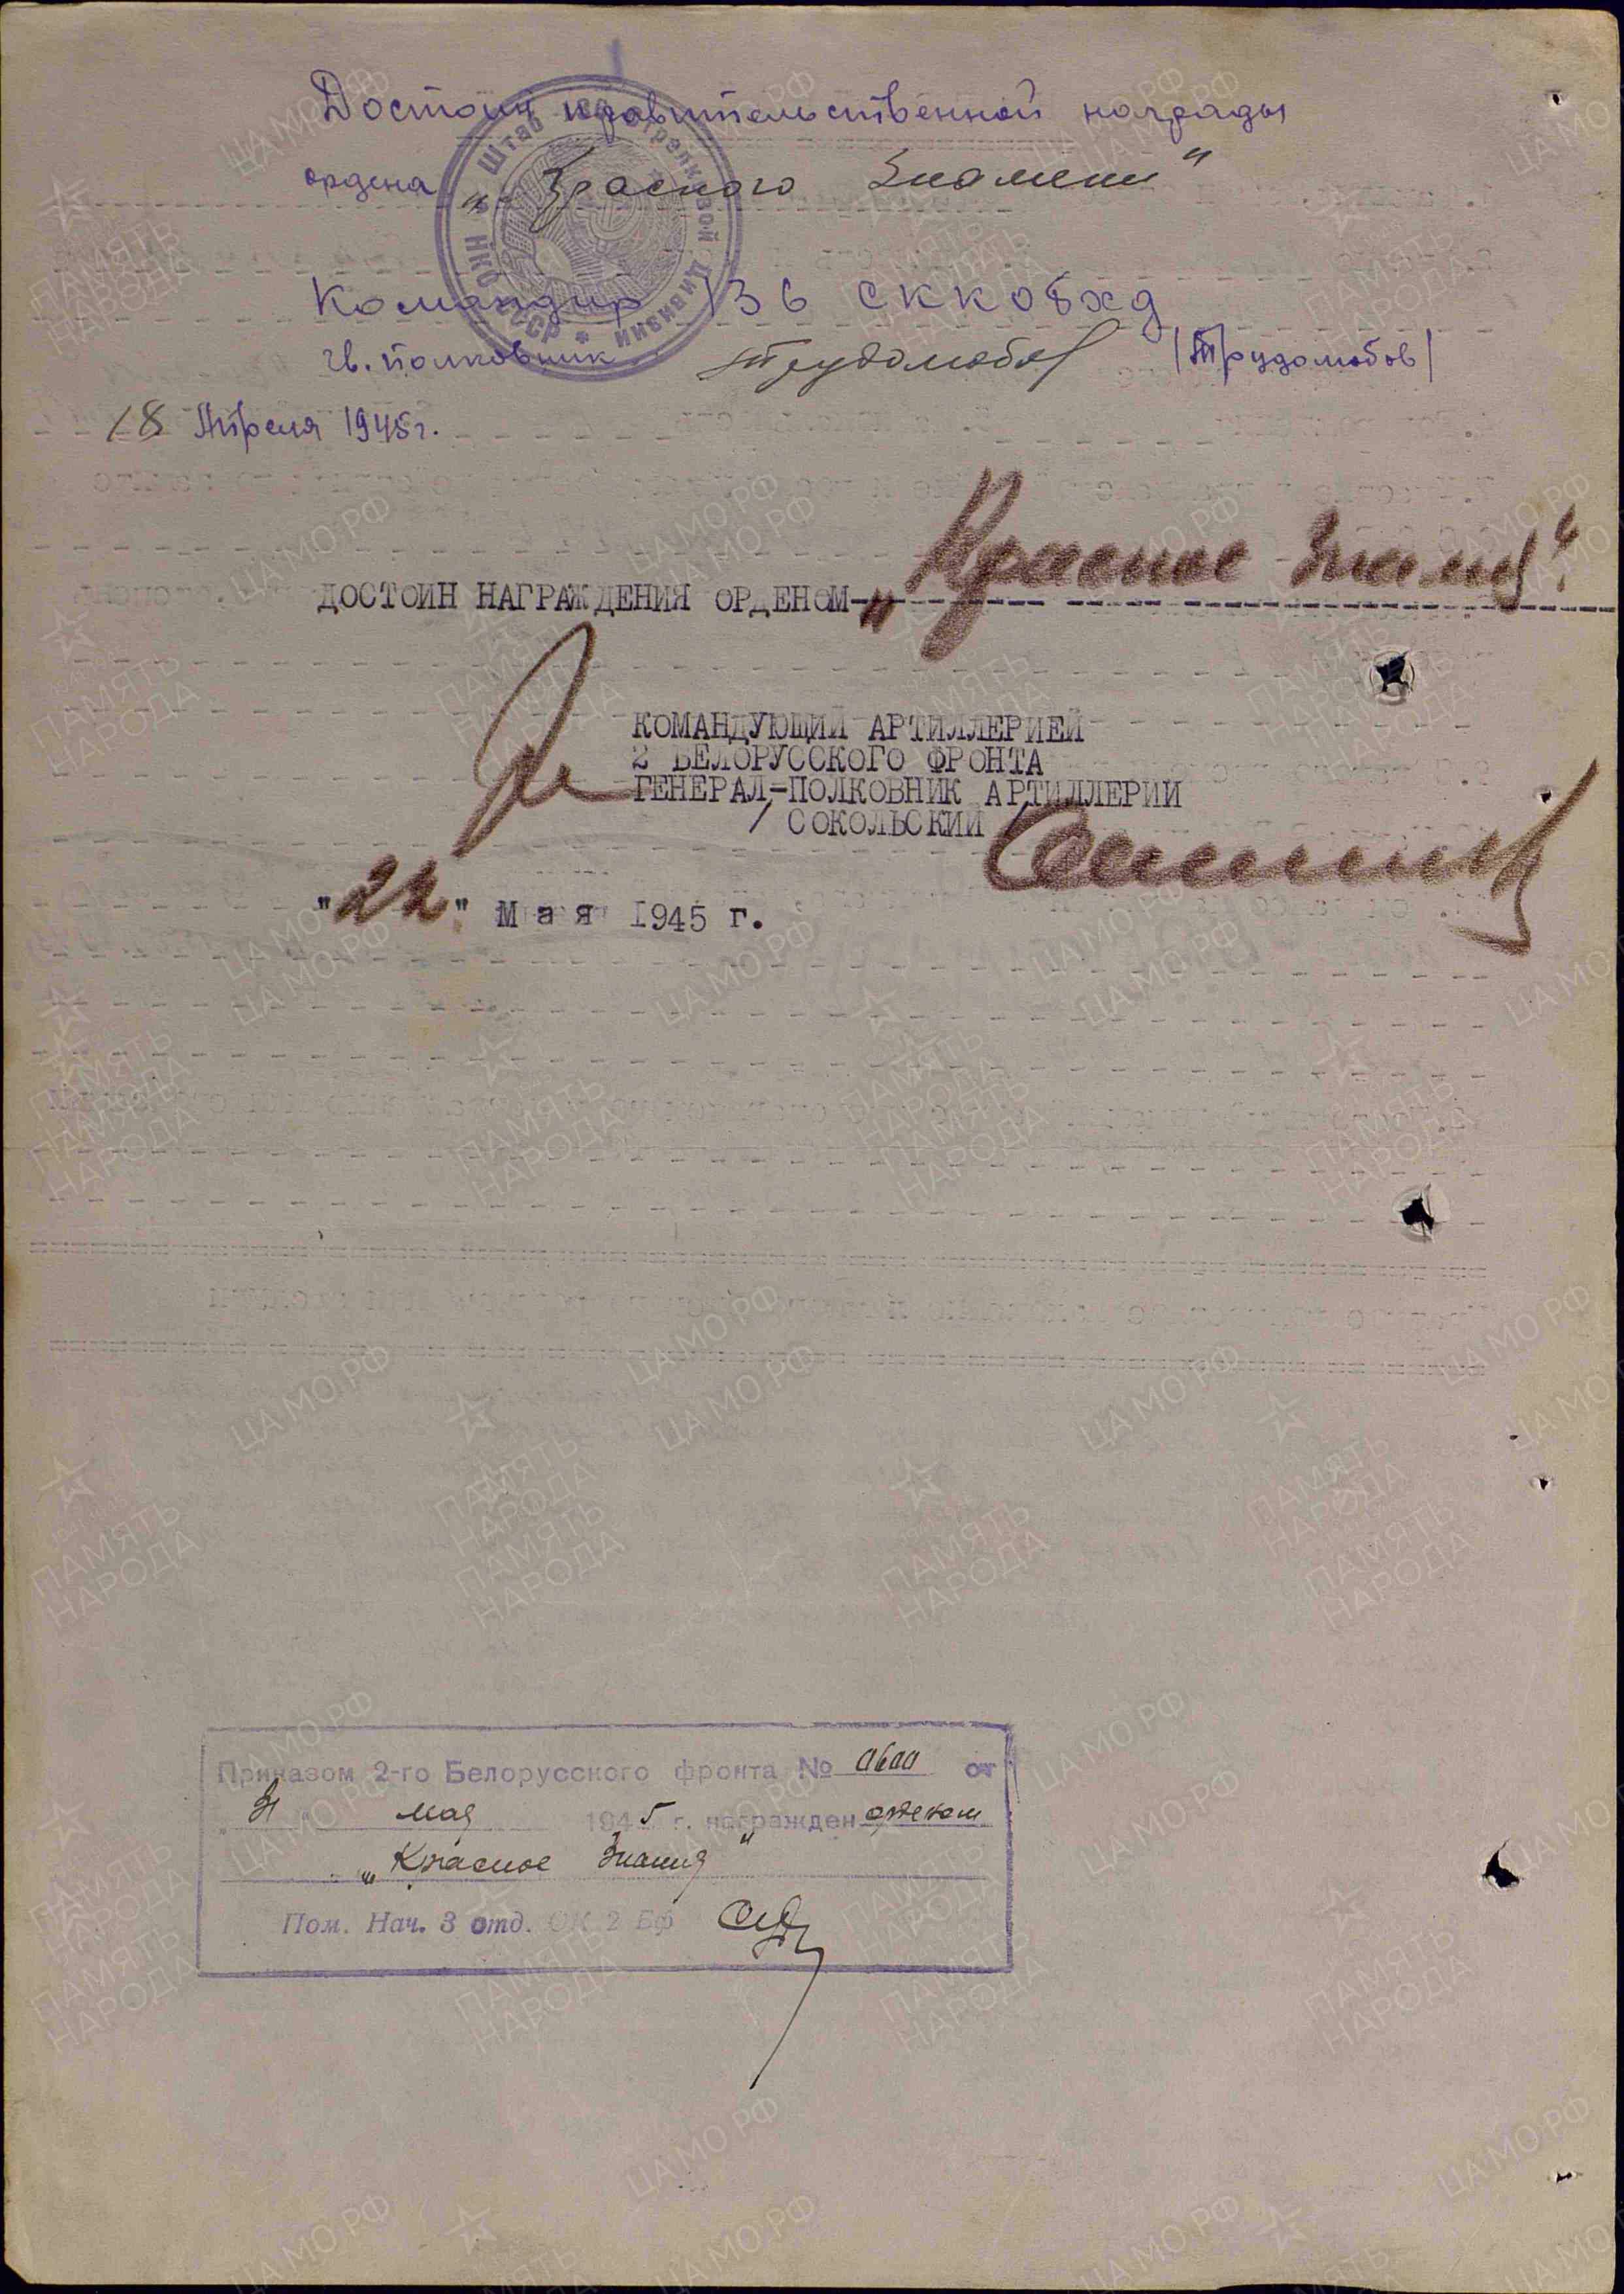 Достоин правительственной награды
ордена „Красного Знамени"
Командир 136 СККОБХД
гв. полковник Трудолюбов /Трудолюбов/
18 Апреля 1945г.
ДОСТОИН НАГРАЖДЕНИЯ ОРДЕНОМ „Красное Знамя".
КОМАНДУЮЩИЙ АРТИЛЛЕРИЕЙ
2 БЕЛОРУССКОГО ФРОНТА
ГЕНЕРАЛ-ПОЛКОВНИК АРТИЛЛЕРИИ
/СОКОЛЬСКИЙ/
"22" Мая 1945 г.
Приказом 2-го Белорусского фронта № 0600 от
31 мая 1945 г. награжден орденом
„Красное Знамя"
Пом. Нач. 3 отд. ОК 2 БФ
Штаб стрелковой дивизии
НКО СССР
ЦА МО РФ
ПАМЯТЬ
НАРОДА